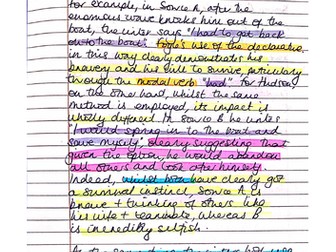 for example, in Source A, after the
enormous wave knocks him out of the
boat, the writer says "I had to get back
on to the boat".
use of the declarative
in this way clearly demonstrates his
bravery and his will to survive, particularly
through the modal verb "had". For Hudson
on the other hand, whilst the same
method is employed, its impact is
wholly different. In Source B he writes
"I would spring in to the boat and
save myself", clearly suggesting that
given the option, he would abandon
all others and look after himself.
Indeed, whilst both have clearly got
a survival instinct, Source A is
brave + thinking of others like
his wife + teammate, whereas B
is incredibly selfish.